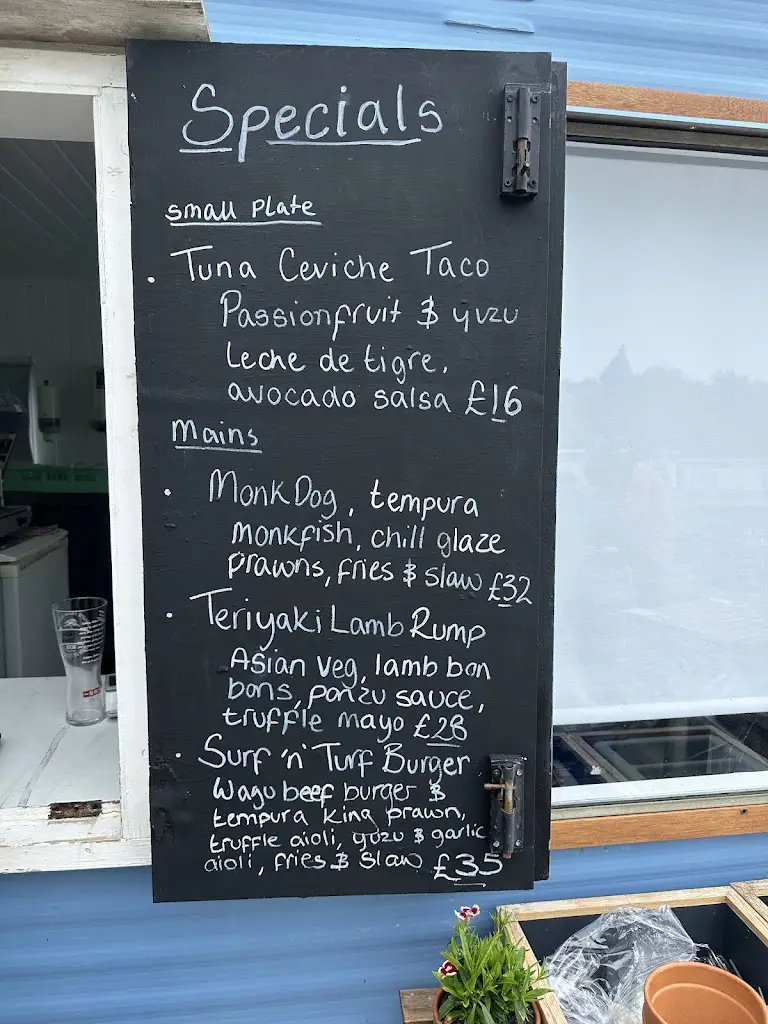 Specials
small plate
. Tuna Ceviche Taco
Passionfruit & yuzu
Leche de tigre,
avocado salsa £16
Mains
. MonkDog, tempura
monkfish, chill glaze
prawns, fries & slaw £32
. Teriyaki Lamb Rump
Asian veg, lamb bon
bons, ponzu sauce,
truffle mayo £28
. Surf 'n' Turf Burger
Wagu beef burger &
tempura king prawn,
truffle aioli, yuzu & garlic
aioli, fries & slaw £35